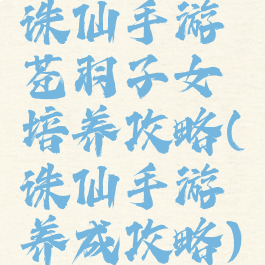 诛仙手游
苍羽子女
培养攻略(
诛仙手游
养成攻略)